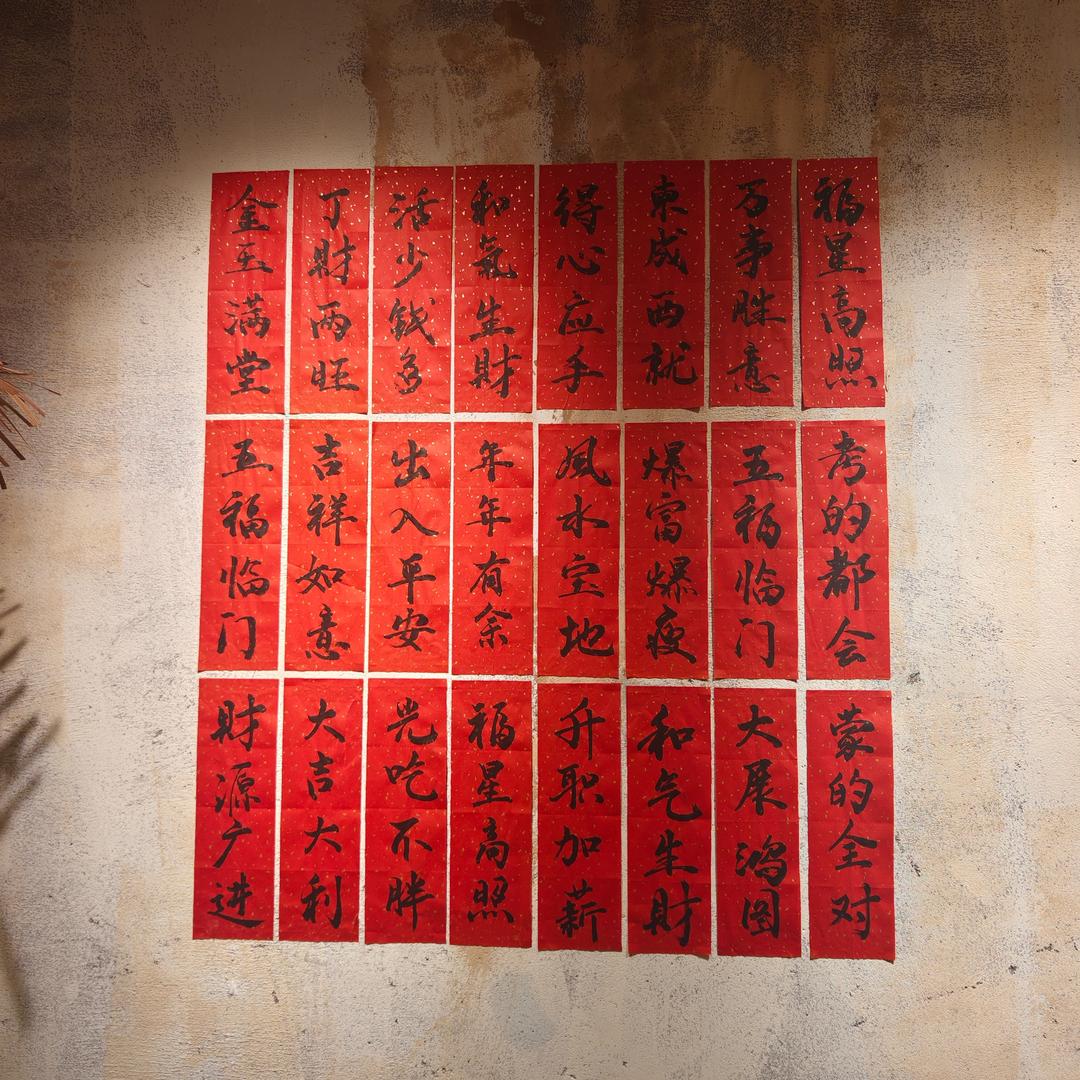 金玉满堂
丁財两旺
活少钱多
和氣生財
得心应手
東成西就
万事胜意
福星高照
五福临门
吉祥如意
出入平安
年年有余
風水宝地
爆富爆瘦
五福临门
考的都会
財源广进
大吉大利
光吃不胖
福星高照
升职加薪
和气生財
大展鸿图
蒙的全对